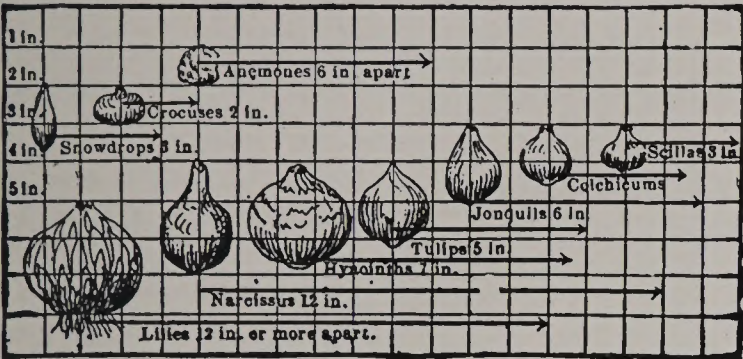 1 in.
Anemones 6 in. apart
2 in.
Crocuses 2 in.
3 in.
Snowdrops 3 in.
4 in.
Scillas 3 in
Colchicums
5 in.
Jonquils 6 in
Tulips 5 in.
Hyacinths 7 in.
Narcissus 12 in.
Lilies 12 in. or more apart.